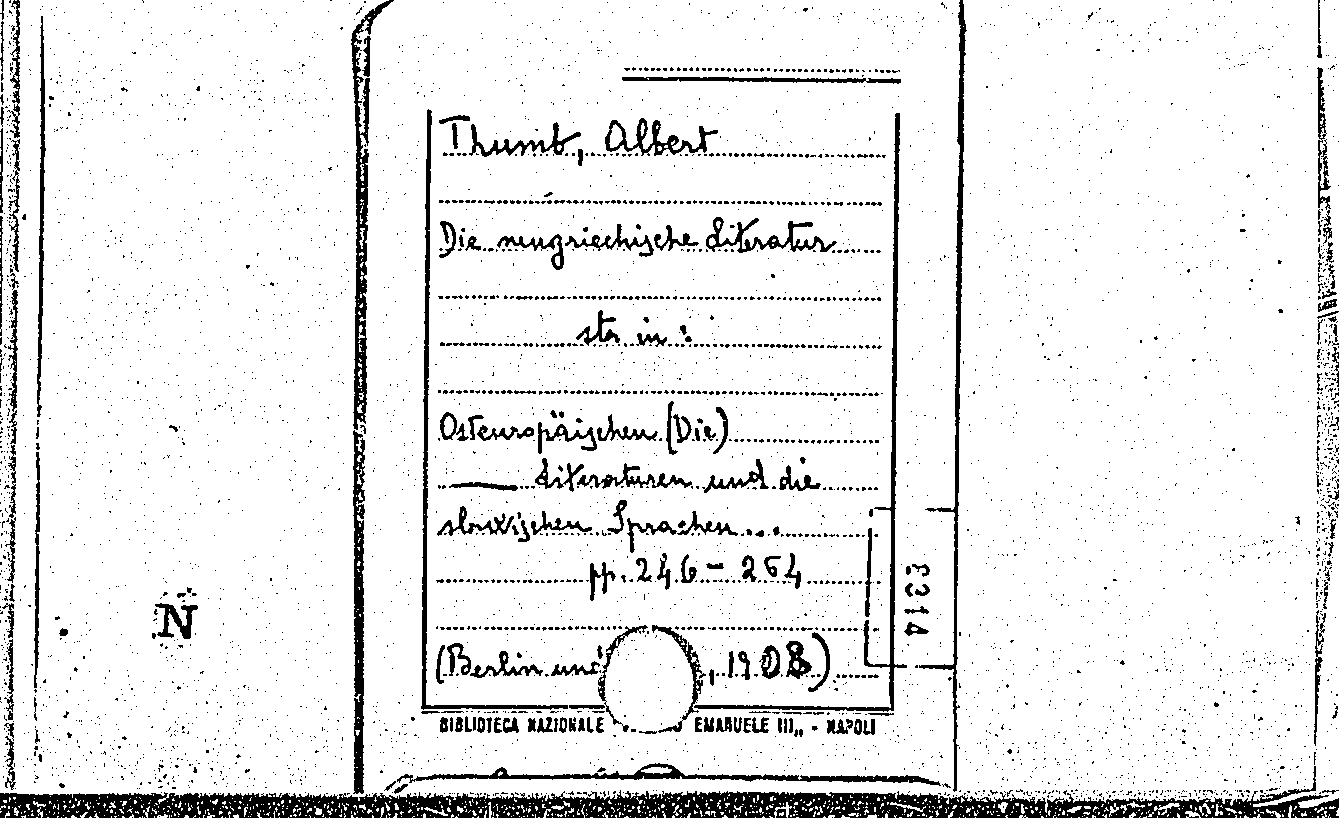 Thumb, Albert
Die neugriechische Literatur
sta in:
Osteuropäischen (Die)
—— Literaturen und die
slawischen Sprachen...
pp. 246-264
(Berlin und , 1908)
BIBLIOTECA NAZIONALE EMANUELE III,, - NAPOLI
N